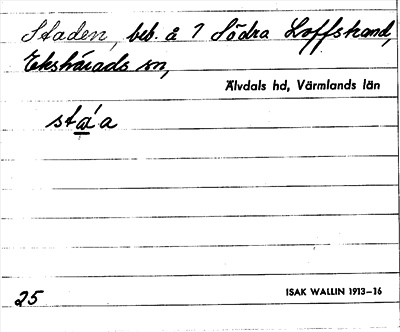 Staden, beb. å 7 Södra Loffstrand,
Ekshärads sn,
Älvdals hd, Värmlands län
sta'a
25
ISAK WALLIN 1913–16